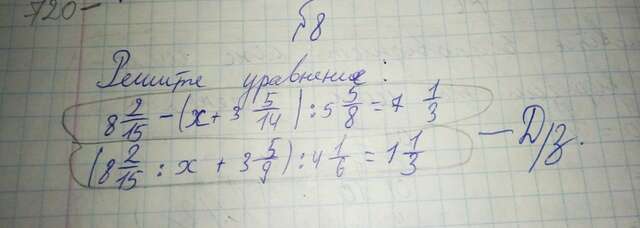 720-
§8
Решите уравнения:
8 2/15 - (x + 3 5/14) : 5 5/8 = 7 1/3
(8 2/15 : x + 3 5/9) : 4 1/6 = 1 1/3
— Д/з.